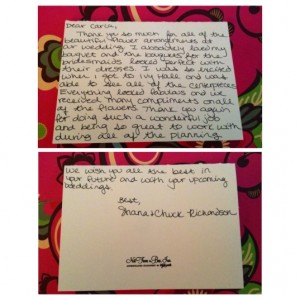 Dear Carla,
Thank you so much for all of the
beautiful flower arrangements at
our wedding. I absolutely loved my
bouquet and the bouquets for the
bridesmaids looked perfect with
their dresses. I was so excited
when I got to Ivy Hall and was
able to see all of the centerpieces.
Everything looked fabulous and we
received many compliments on all
of the flowers. Thank you again
for doing such a wonderful job
and being so great to work with
during all of the planning.
We wish you all the best in
your future and with your upcoming
weddings.
Best,
& Chuck Richardson